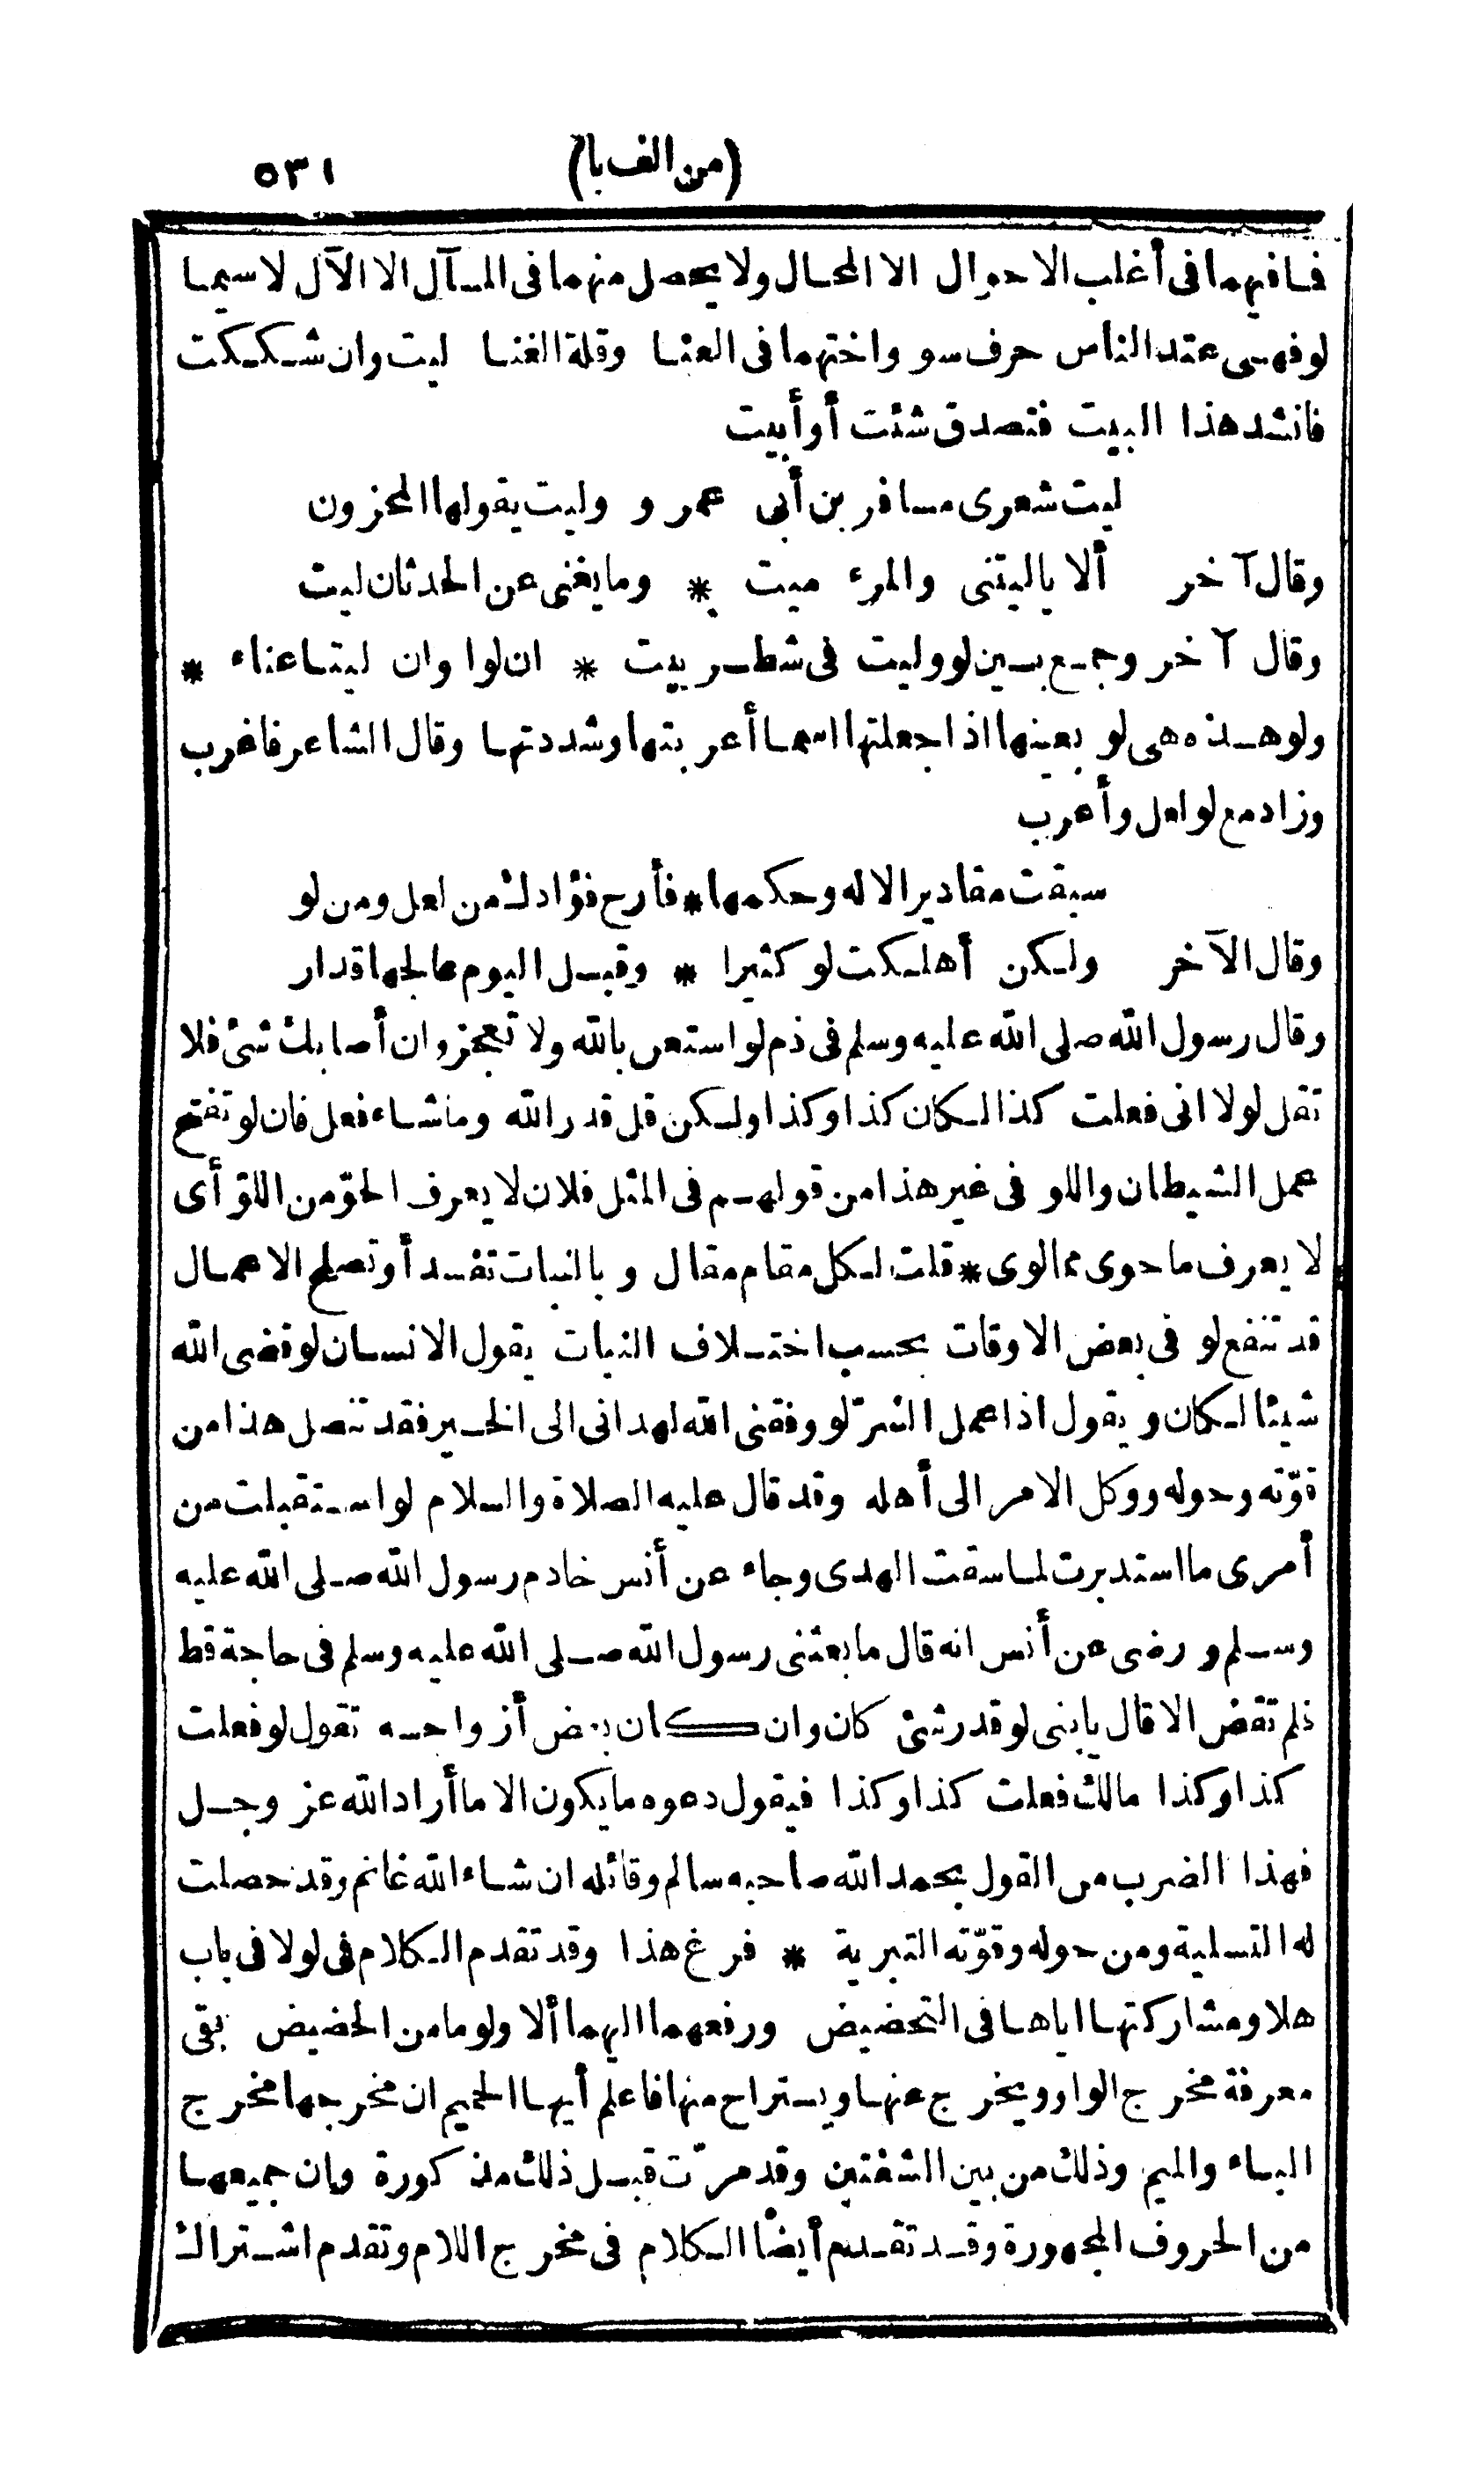 (من الف با) ٥٣١
فما فيهما فى أغلب الاحوال الا المحال ولا يحصل منهما فى المآل الا الآل لا سيما
لو فهى عند الناس حرف سو واختهما فى العنا وقلة الغنا ليت وان شككت
فانشد هذا البيت فتصدق شئت أو أبيت
ليت شعرى مسافر بن أبى عمرو وليت يقولها المحزون
وقال آخر ألا ياليتنى والمرء ميت * وما يغنى عن الحدثان ليت
وقال آخر وجمع بين لو وليت فى شطر بيت * ان لوا وان ليتا عناء *
ولو هذه هى لو بعينها اذا جعلتها اسما أعربتها وشددتها وقال الشاعر فاغرب
وزاد مع لو لعل وأعرب
سبقت مقادير الاله وحكمها * فأرح فؤادك من لعل ومن لو
وقال الآخر ولكن أهلكت لو كثيرا * وقبل اليوم عالجها قدار
وقال رسول الله صلى الله عليه وسلم فى ذم لو استعن بالله ولا تعجز وان أصابك شئ فلا
تقل لولا انى فعلت كذا لكان كذا وكذا ولكن قل قدر الله وما شاء فعل فان لو تفتح
عمل الشيطان واللو فى غير هذا من قولهم فى المثل فلان لا يعرف الحوّ من اللوّ أى
لا يعرف ما حوى مما لوى * قلت لكل مقام مقال وبالنيات تفسد أو تصلح الاعمال
قد تنفع لو فى بعض الاوقات بحسب اختلاف النيات يقول الانسان لو قضى الله
شيئا لكان ويقول اذا عمل الشرّ لو وفقنى الله لهدانى الى الخير فقد تنصل هذا من
قوّته وحوله ووكل الامر الى أهله وقد قال عليه الصلاة والسلام لو استقبلت من
أمرى ما استدبرت لما سقت الهدى وجاء عن أنس خادم رسول الله صلى الله عليه
وسلم ورضى عن أنس انه قال ما بعثنى رسول الله صلى الله عليه وسلم فى حاجة قط
فلم تقض الا قال يابنى لو قدر شئ كان وان كان بعض أزواجه تقول لو فعلت
كذا وكذا مالك فعلت كذا وكذا فيقول دعوه ما يكون الا ما أراد الله عز وجل
فهذا الضرب من القول بحمد الله صاحبه سالم وقائله ان شاء الله غانم وقد حصلت
له التسلية ومن حوله وقوّته التبرية * فرغ هذا وقد تقدم الكلام فى لولا فى باب
هلا ومشاركتها اياها فى التحضيض ورفعهما اليهما ألا ولوما من الحضيض بقى
معرفة مخرج الواو ويخرج عنها ويستراح منها فاعلم أيها الحميم ان مخرجها مخرج
الباء والميم وذلك من بين الشفتين وقد مرّت قبل ذلك مذكورة وان جميعها
من الحروف المجهورة وقد تقدم أيضا الكلام فى مخرج اللام وتقدم اشتراك